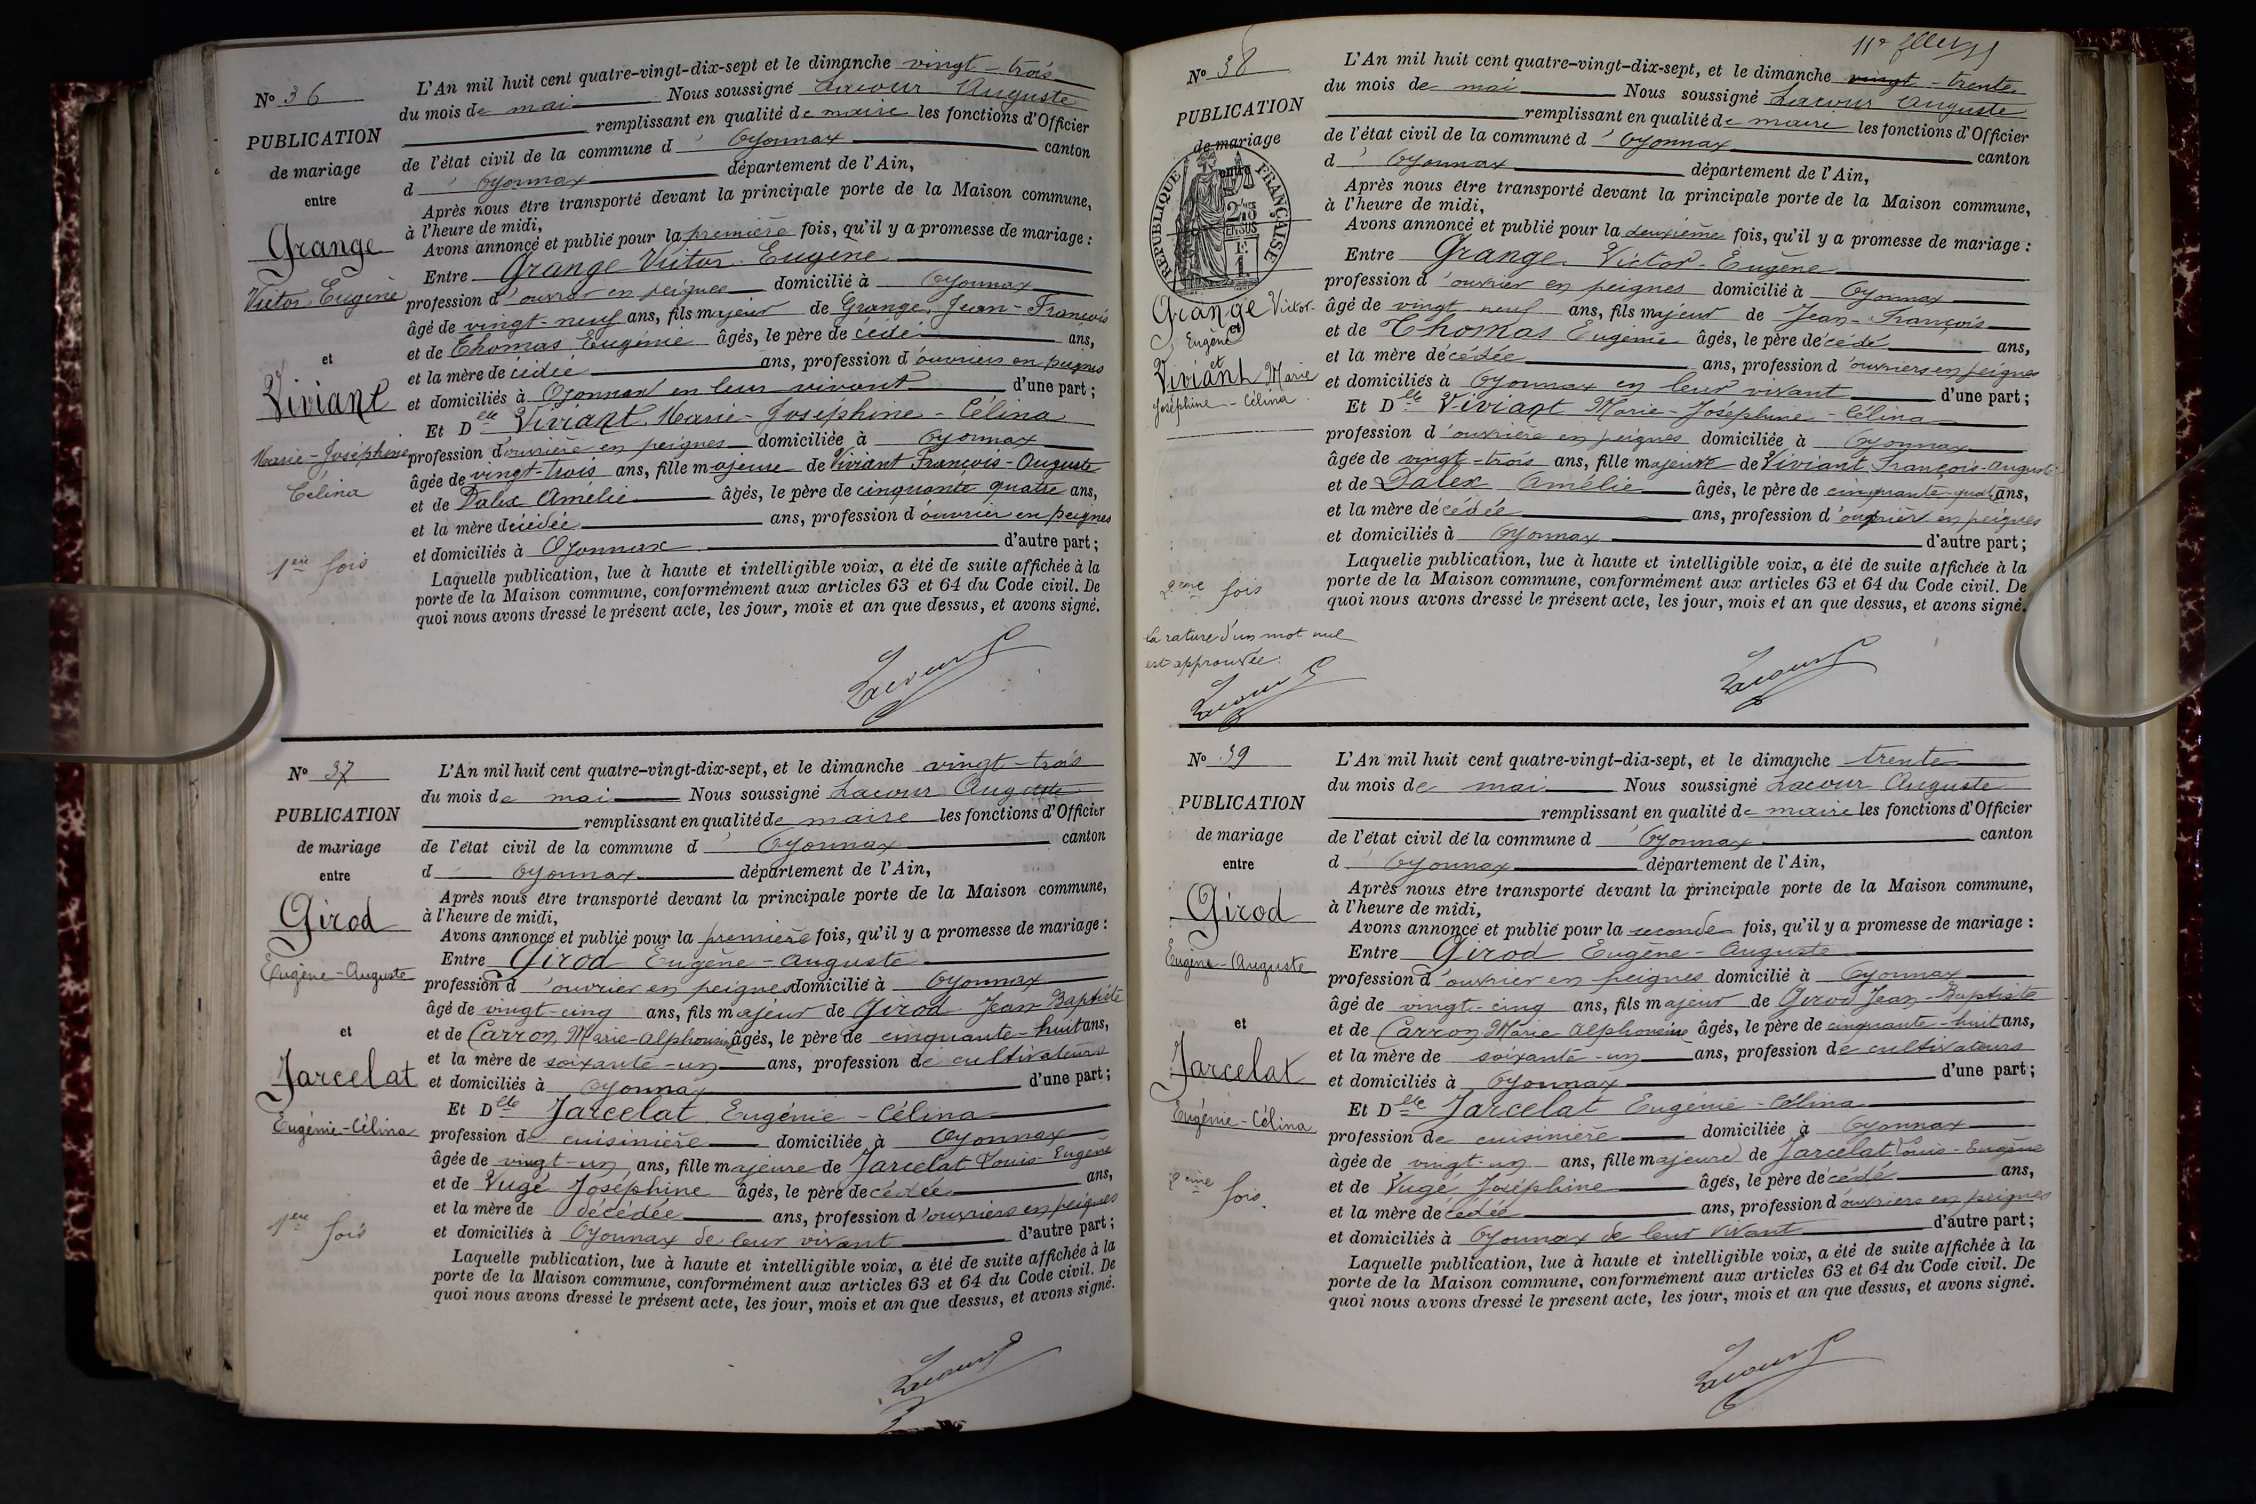 N° 36
PUBLICATION
de mariage
entre
Grange
Victor Eugène
et
Viviant
Marie-Joséphine
Célina
1ère fois
L'An mil huit cent quatre-vingt-dix-sept et le dimanche vingt-trois
du mois de mai Nous soussigné Lacour Auguste
remplissant en qualité de maire les fonctions d'Officier
de l'état civil de la commune d' Oyonnax canton
d' Oyonnax département de l'Ain,
Après nous être transporté devant la principale porte de la Maison commune,
à l'heure de midi,
Avons annoncé et publié pour la première fois, qu'il y a promesse de mariage :
Entre Grange Victor Eugène
profession d'ouvrier en peignes domicilié à Oyonnax
âgé de vingt-neuf ans, fils majeur de Grange, Jean-François
et de Thomas Eugénie âgés, le père de cédé ans,
et la mère de cédée ans, profession d'ouvriers en peignes
et domiciliés à Oyonnax en leur vivant d'une part ;
Et Dlle Viviant Marie-Joséphine-Célina
profession d'ouvrière en peignes domiciliée à Oyonnax
âgée de vingt-trois ans, fille majeure de Viviant François-Auguste
et de Dalex Amélie âgés, le père de cinquante quatre ans,
et la mère décédée ans, profession d'ouvrier en peignes
et domiciliés à Oyonnax d'autre part ;
Laquelle publication, lue à haute et intelligible voix, a été de suite affichée à la
porte de la Maison commune, conformément aux articles 63 et 64 du Code civil. De
quoi nous avons dressé le présent acte, les jour, mois et an que dessus, et avons signé.
Lacour
N° 37
PUBLICATION
de mariage
entre
Girod
Eugène-Auguste
et
Jarcelat
Eugénie-Célina
1ère fois
L'An mil huit cent quatre-vingt-dix-sept, et le dimanche vingt-trois
du mois de mai Nous soussigné Lacour Auguste
remplissant en qualité de maire les fonctions d'Officier
de l'état civil de la commune d' Oyonnax canton
d Oyonnax département de l'Ain,
Après nous être transporté devant la principale porte de la Maison commune,
à l'heure de midi,
Avons annoncé et publié pour la première fois, qu'il y a promesse de mariage :
Entre Girod Eugène-Auguste
profession d'ouvrier en peignes domicilié à Oyonnax
âgé de vingt-cinq ans, fils majeur de Girod Jean Baptiste
et de Carron Marie-Alphonsine âgés, le père de cinquante-huit ans,
et la mère de soixante-un ans, profession de cultivateurs
et domiciliés à Oyonnax d'une part ;
Et Dlle Jarcelat Eugénie-Célina
profession de cuisinière domiciliée à Oyonnax
âgée de vingt-un ans, fille majeure de Jarcelat Louis-Eugène
et de Vugé Joséphine âgés, le père de cédée ans,
et la mère de décédée ans, profession d'ouvriers en peignes
et domiciliés à Oyonnax de leur vivant d'autre part ;
Laquelle publication, lue à haute et intelligible voix, a été de suite affichée à la
porte de la Maison commune, conformément aux articles 63 et 64 du Code civil. De
quoi nous avons dressé le présent acte, les jour, mois et an que dessus, et avons signé.
Lacour
N° 38
PUBLICATION
de mariage
entre
RÉPUBLIQUE FRANÇAISE
Grange Victor-
Eugène
et
Viviant Marie
Joséphine-Célina
2ème fois
la rature d'un mot nul
est approuvée.
Lacour
L'An mil huit cent quatre-vingt-dix-sept, et le dimanche vingt-trente
du mois de mai Nous soussigné Lacour Auguste
remplissant en qualité de maire les fonctions d'Officier
de l'état civil de la commune d' Oyonnax canton
d' Oyonnax département de l'Ain,
Après nous être transporté devant la principale porte de la Maison commune,
à l'heure de midi,
Avons annoncé et publié pour la deuxième fois, qu'il y a promesse de mariage :
Entre Grange Victor-Eugène
profession d'ouvrier en peignes domicilié à Oyonnax
âgé de vingt neuf ans, fils majeur de Jean-François
et de Thomas Eugénie âgés, le père décédé ans,
et la mère décédée ans, profession d'ouvriers en peignes
et domiciliés à Oyonnax en leur vivant d'une part ;
Et Dlle Viviant Marie-Joséphine-Célina
profession d'ouvrière en peignes domiciliée à Oyonnax
âgée de vingt-trois ans, fille majeure de Viviant François-Auguste
et de Dalex Amélie âgés, le père de cinquante-quatre ans,
et la mère décédée ans, profession d'ouvrier en peignes
et domiciliés à Oyonnax d'autre part ;
Laquelle publication, lue à haute et intelligible voix, a été de suite affichée à la
porte de la Maison commune, conformément aux articles 63 et 64 du Code civil. De
quoi nous avons dressé le présent acte, les jour, mois et an que dessus, et avons signé.
Lacour
N° 39
PUBLICATION
de mariage
entre
Girod
Eugène-Auguste
et
Jarcelat
Eugénie-Célina
2ème fois.
L'An mil huit cent quatre-vingt-dix-sept, et le dimanche trente
du mois de mai Nous soussigné Lacour Auguste
remplissant en qualité de maire les fonctions d'Officier
de l'état civil de la commune d' Oyonnax canton
d' Oyonnax département de l'Ain,
Après nous être transporté devant la principale porte de la Maison commune,
à l'heure de midi,
Avons annoncé et publié pour la seconde fois, qu'il y a promesse de mariage :
Entre Girod Eugène-Auguste
profession d'ouvrier en peignes domicilié à Oyonnax
âgé de vingt-cinq ans, fils majeur de Girod Jean-Baptiste
et de Carron Marie Alphonsine âgés, le père de cinquante-huit ans,
et la mère de soixante-un ans, profession de cultivateurs
et domiciliés à Oyonnax d'une part ;
Et Dlle Jarcelat Eugénie-Célina
profession de cuisinière domiciliée à Oyonnax
âgée de vingt-un ans, fille majeure de Jarcelat Louis-Eugène
et de Vugé Joséphine âgés, le père décédé ans,
et la mère décédée ans, profession d'ouvriers en peignes
et domiciliés à Oyonnax de leur vivant d'autre part ;
Laquelle publication, lue à haute et intelligible voix, a été de suite affichée à la
porte de la Maison commune, conformément aux articles 63 et 64 du Code civil. De
quoi nous avons dressé le présent acte, les jour, mois et an que dessus, et avons signé.
Lacour